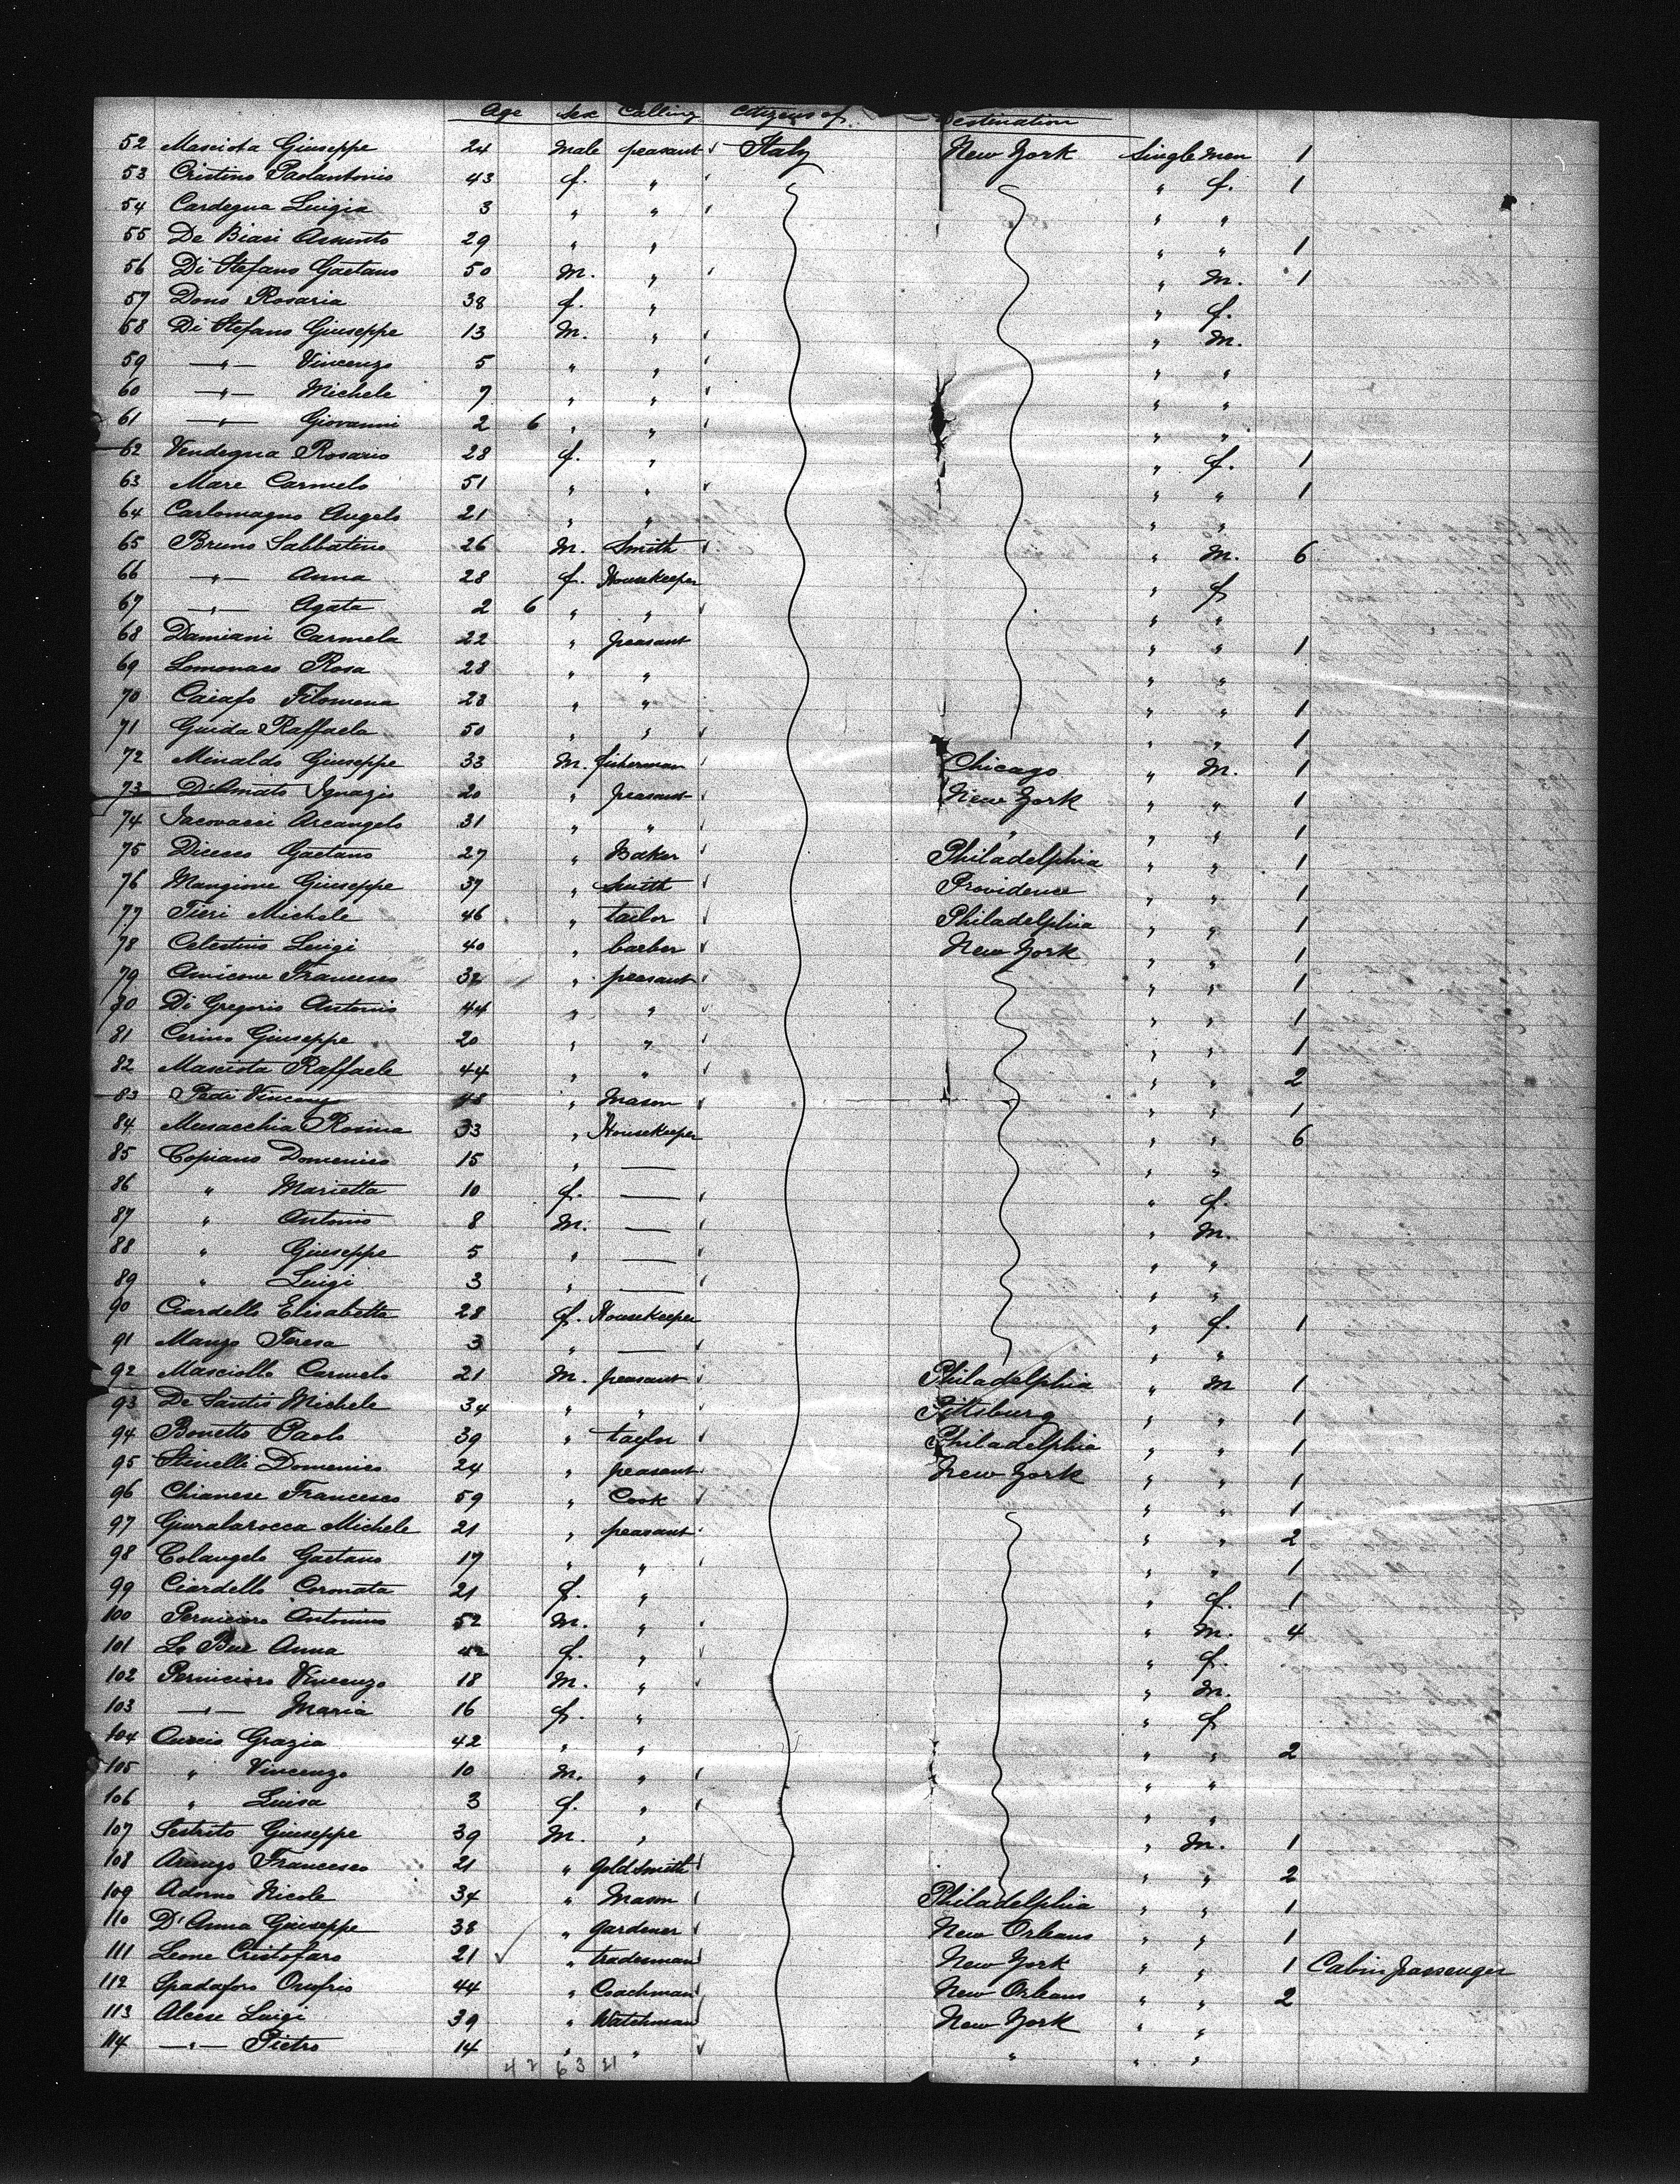 Age Sex Calling Citizens of Destination
52 Masciota Giuseppe 24 Male peasant Italy New York Single Men 1
53 Cristino Paolantonio 43 f. " " f. 1
54 Cardegna Luigia 3 " " " "
55 De Biasi Assunto 29 " " " " 1
56 Di Stefano Gaetano 50 M. " " M. 1
57 Dono Rosaria 38 f. " " f.
58 Di Stefano Giuseppe 13 M. " " M.
59 —"— Vincenzo 5 " " " "
60 —"— Michele 7 " " " "
61 —"— Giovanni 2 6 " " " "
62 Vendegna Rosario 28 f. " " f. 1
63 Mare Carmelo 51 " " " " 1
64 Carlomagno Angelo 21 " " " "
65 Bruno Sabbatino 26 M. Smith " M. 6
66 —"— Anna 28 f. Housekeeper " f
67 —"— Agata 2 6 " " " "
68 Damiani Carmela 22 " peasant " " 1
69 Lomonaco Rosa 28 " " " "
70 Caiafo Filomena 28 " " " " 1
71 Guida Raffaela 50 " " " " 1
72 Minaldo Giuseppe 33 M. fisherman Chicago " M. 1
73 Ignazio 20 " peasant New York " " 1
74 Iacovacci Arcangelo 31 " " " " " 1
75 Dicecco Gaetano 27 " Baker Philadelphia " " 1
76 Mangione Giuseppe 37 " Smith Providence " " 1
77 Tieri Michele 46 " tailor Philadelphia " " 1
78 Celestino Luigi 40 " barber New York " " 1
79 Amicone Francesco 32 " peasant " " 1
80 Di Gregorio Antonio 44 " " " " 1
81 Cerino Giuseppe 20 " " " " 1
82 Masciota Raffaele 44 " " " " 2
83 Vincenzo " Mason " " 1
84 Musacchia Rosina 33 " Housekeeper " " 6
85 Copiano Domenico 15 " — " "
86 " Marietta 10 f. — " f.
87 " Antonio 8 M. — " M.
88 " Giuseppe 5 " — " "
89 " Luigi 3 " — " "
90 Ciardello Elisabetta 28 f. Housekeeper " f. 1
91 Manzo Teresa 3 " — " "
92 Masciollo Carmelo 21 M. peasant Philadelphia " M 1
93 De Santis Michele 34 " " Pittsburg " " 1
94 Bonetto Paolo 39 " taylor Philadelphia " " 1
95 Stinelli Domenico 24 " peasant New York " " 1
96 Chianese Francesco 59 " Cook " " 1
97 Giuralarocca Michele 21 " peasant " " 2
98 Colangelo Gaetano 17 " " " " 1
99 Ciardello Coronata 21 f. " " f. 1
100 Perniciaro Antonino 52 M. " " M. 4
101 Lo Bue Anna 42 f. " " f.
102 Perniciaro Vincenzo 18 M. " " M.
103 —"— Maria 16 f. " " f
104 Grazia 42 " " " " 2
105 " Vincenzo 10 M. " " "
106 " Luisa 3 f. " " "
107 Sestrito Giuseppe 39 M. " " M. 1
108 Francesco 21 " Goldsmith " " 2
109 Adorno Nicole 34 " Mason Philadelphia " " 1
110 D'Anna Giuseppe 38 " gardener New Orleans " " 1
111 Leone Cristofaro 21 " tradesman New York " " 1 Cabin passenger
112 Spadaforo Onofrio 44 " Coachman New Orleans " " 2
113 Alcese Luigi 39 " Watchman New York " "
114 —"— Pietro 14 " " " " "
42 63 21